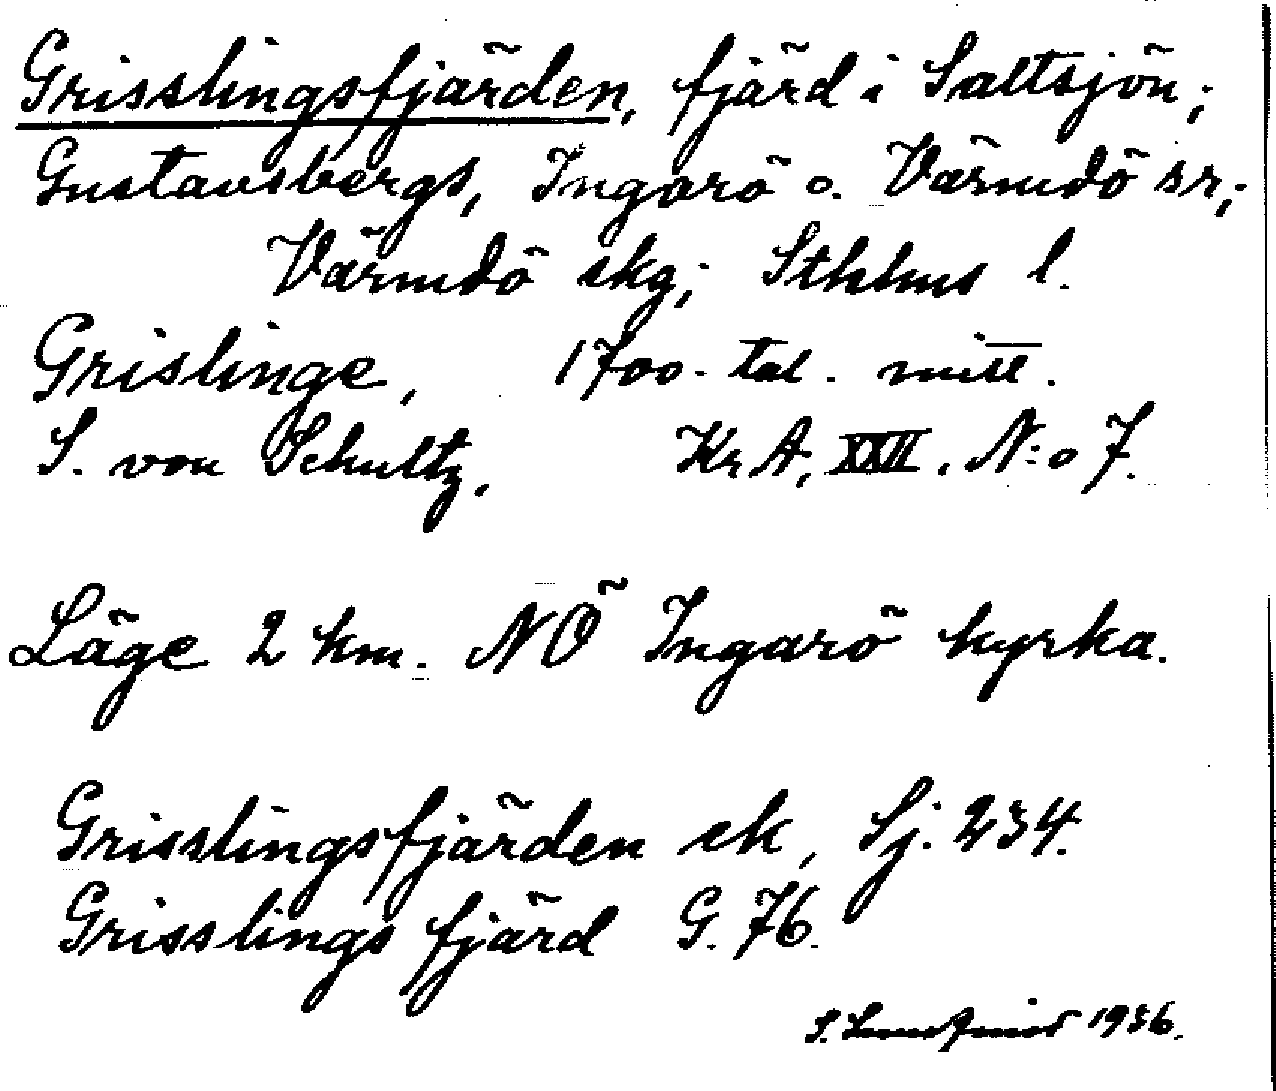 Grisslingsfjärden, fjärd i Saltsjön;
Gustavsbergs, Ingarö o. Värmdö snr;
Värmdö skg; Sthlms l.
Grislinge, 1700-tal. mitt.
S. von Schultz, Kr A, XXII. N:o 7.
Läge 2 km. NÖ Ingarö kyrka.
Grisslingsfjärden ek, Sj. 234.
Grisslings fjärd G. 76.
S. 1936.